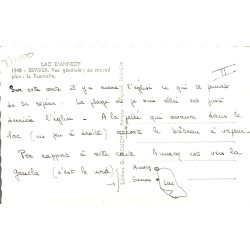 LAC D'ANNECY
1948 - SEVRIER. Vue générale ; au second
plan : la Tournette.
II
Sur cette carte il y a même l'église ce qui te permet
de te repérer. La plage où je suis allée est juste
derrière l'église. A la jetée qui avance dans le
lac (un peu à droite) accoste le bateau à vapeur.
Par rapport à cette carte Annecy est vers la
gauche (c'est le nord)
Annecy
Sevrier
Lac